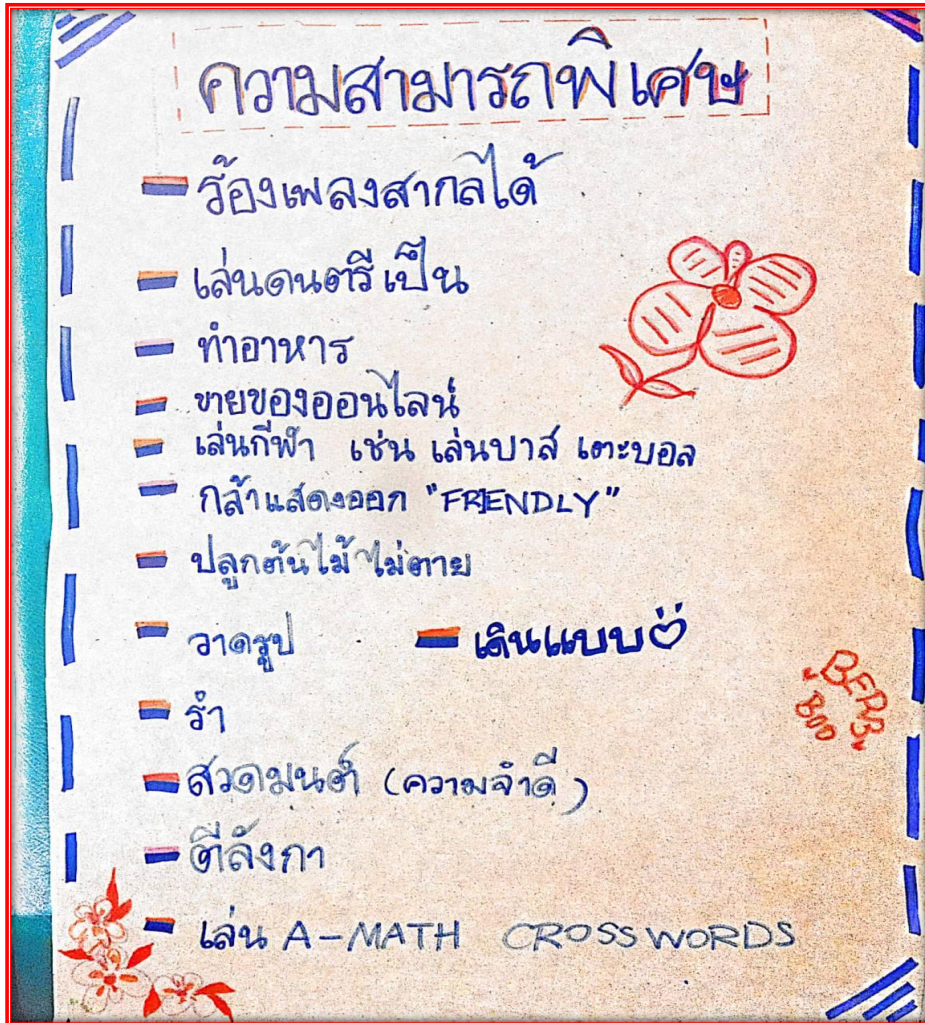 ความสามารถพิเศษ
- ร้องเพลงสากลได้
- เล่นดนตรีเป็น
- ทำอาหาร
- ขายของออนไลน์
- เล่นกีฬา เช่น เล่นบาส เตะบอล
- กล้าแสดงออก "FRIENDLY"
- ปลูกต้นไม้ ไม่ตาย
- วาดรูป - เดินแบบ
- รำ
- สวดมนต์ (ความจำดี)
- ตีลังกา
- เล่น A-MATH CROSSWORDS